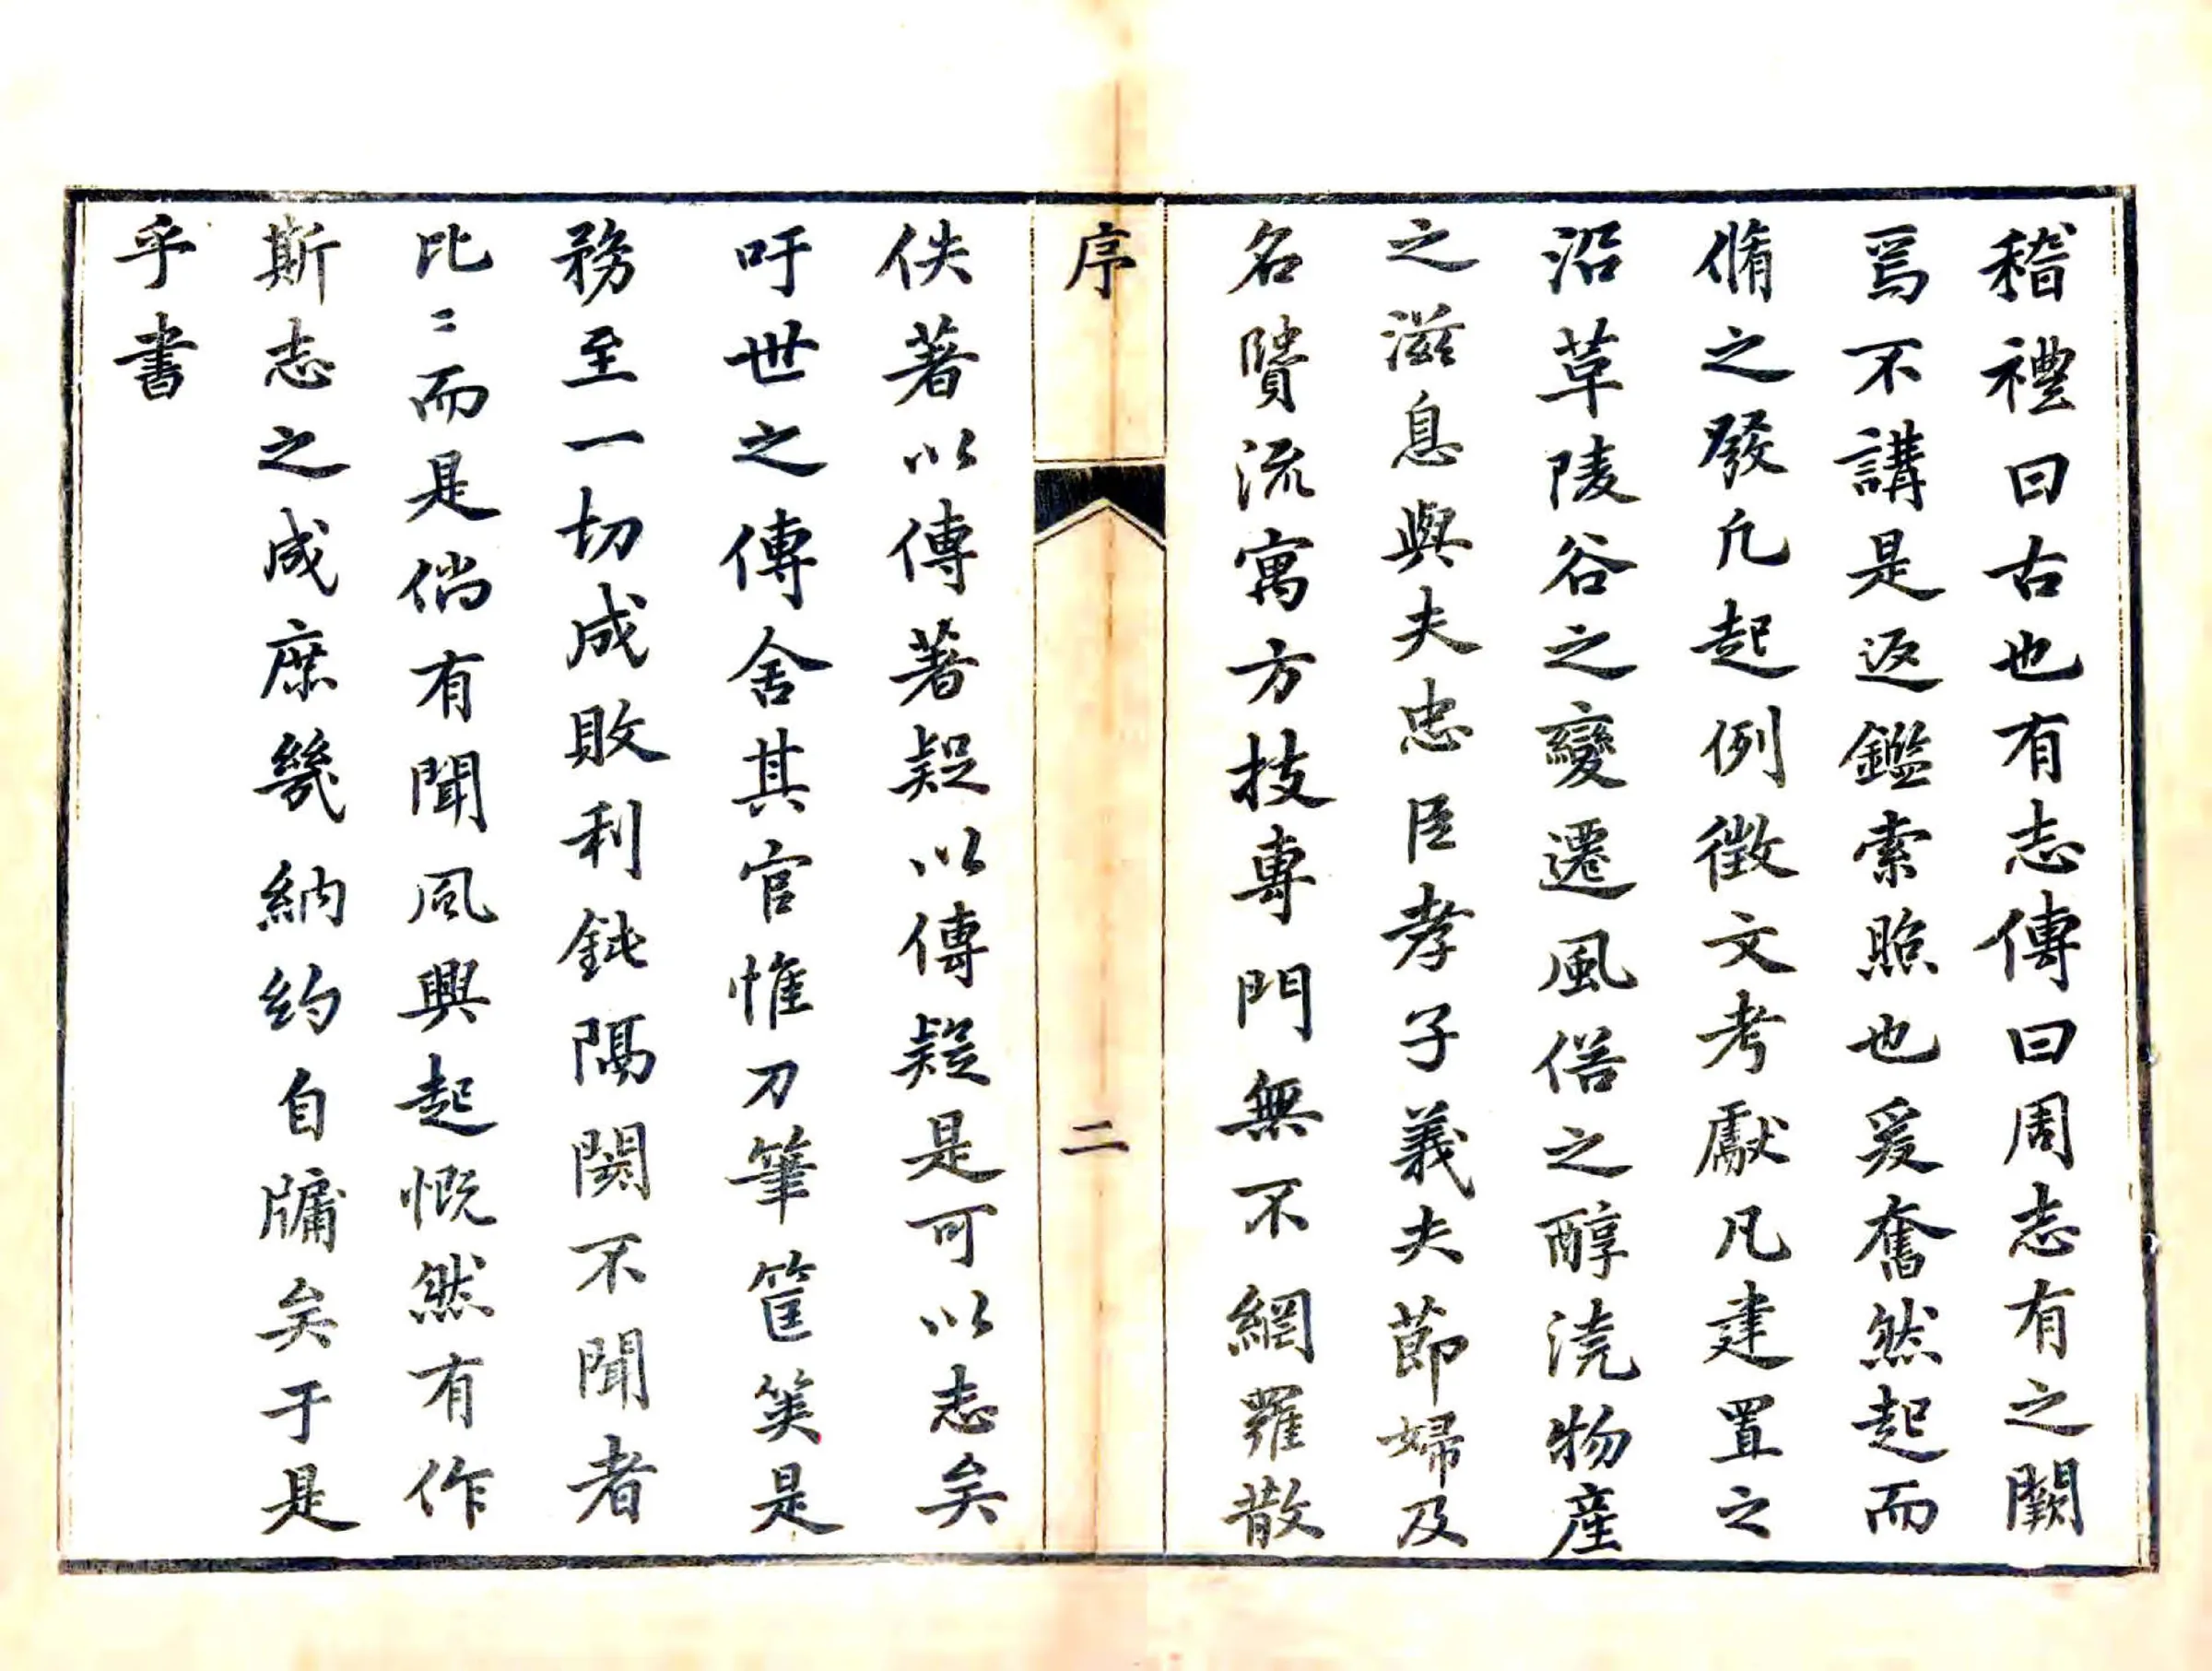 稽禮曰古也有志傳曰周志有之闕
焉不講是返鑑索照也爰奮然起而
脩之發凡起例徵文考獻凡建置之
沿革陵谷之變遷風俗之醇澆物產
之滋息與夫忠臣孝子義夫節婦及
名賢流寓方技專門無不網羅散
序
二
佚著以傳著疑以傳疑是可以志矣
吁世之傳舍其官惟刀筆筐篋是
務至一切成敗利鈍隔閡不聞者
比〻而是倘有聞風興起慨然有作
斯志之成庶幾納約自牖矣于是
乎書